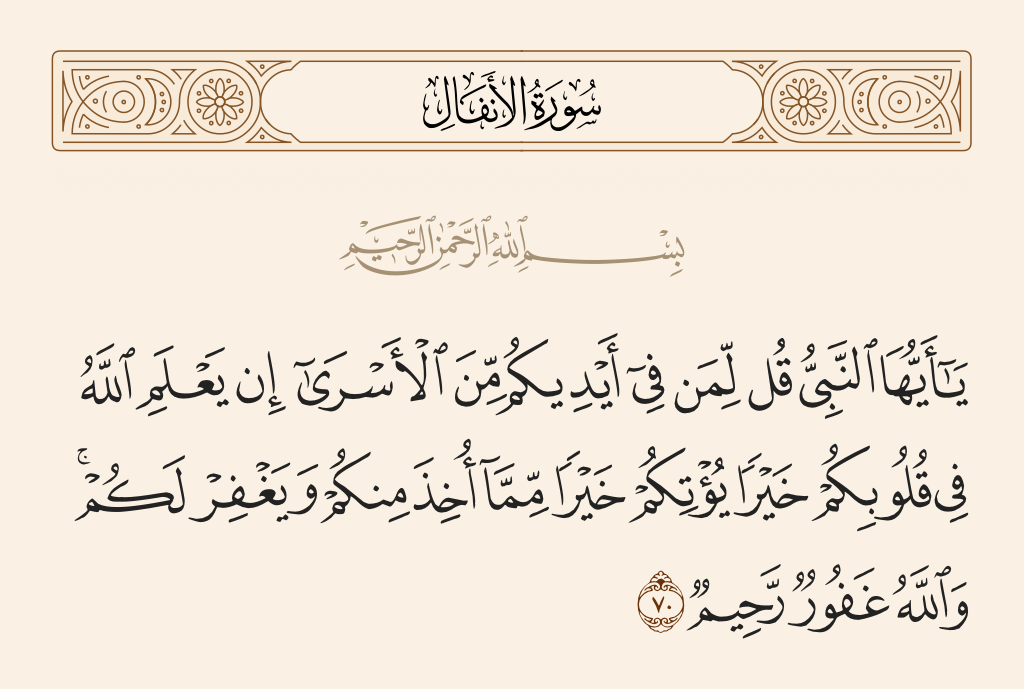 سُورَةُ الأَنفَالِ
بِسْمِ ٱللَّهِ ٱلرَّحْمَٰنِ ٱلرَّحِيمِ
يَٰٓأَيُّهَا ٱلنَّبِىُّ قُل لِّمَن فِىٓ أَيْدِيكُم مِّنَ ٱلْأَسْرَىٰٓ إِن يَعْلَمِ ٱللَّهُ
فِى قُلُوبِكُمْ خَيْرًا يُؤْتِكُمْ خَيْرًا مِّمَّآ أُخِذَ مِنكُمْ وَيَغْفِرْ لَكُمْ ۚ
وَٱللَّهُ غَفُورٌ رَّحِيمٌ ٧٠